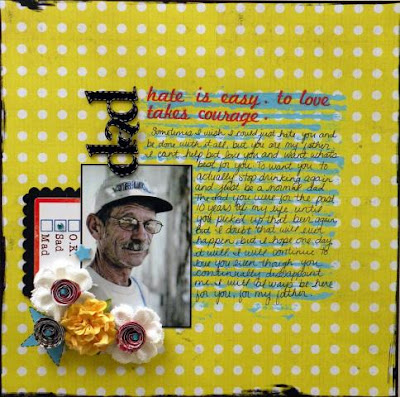 dad
hate is easy. to love
takes courage.
Sometimes i wish i could just hate you and
be done with it all, but you are my father
i cant help but love you and want whats
best for you. I want you to
actually stop drinking again
and just be a normal dad
The dad you were for the past
10 years of my life until
you picked up that beer again
But i doubt that will ever
happen, but i hope one day
it will. I will continue to
love you even though you
continually disappoint
me. i will always be here
for you, for my father.
O.K
Sad
Mad